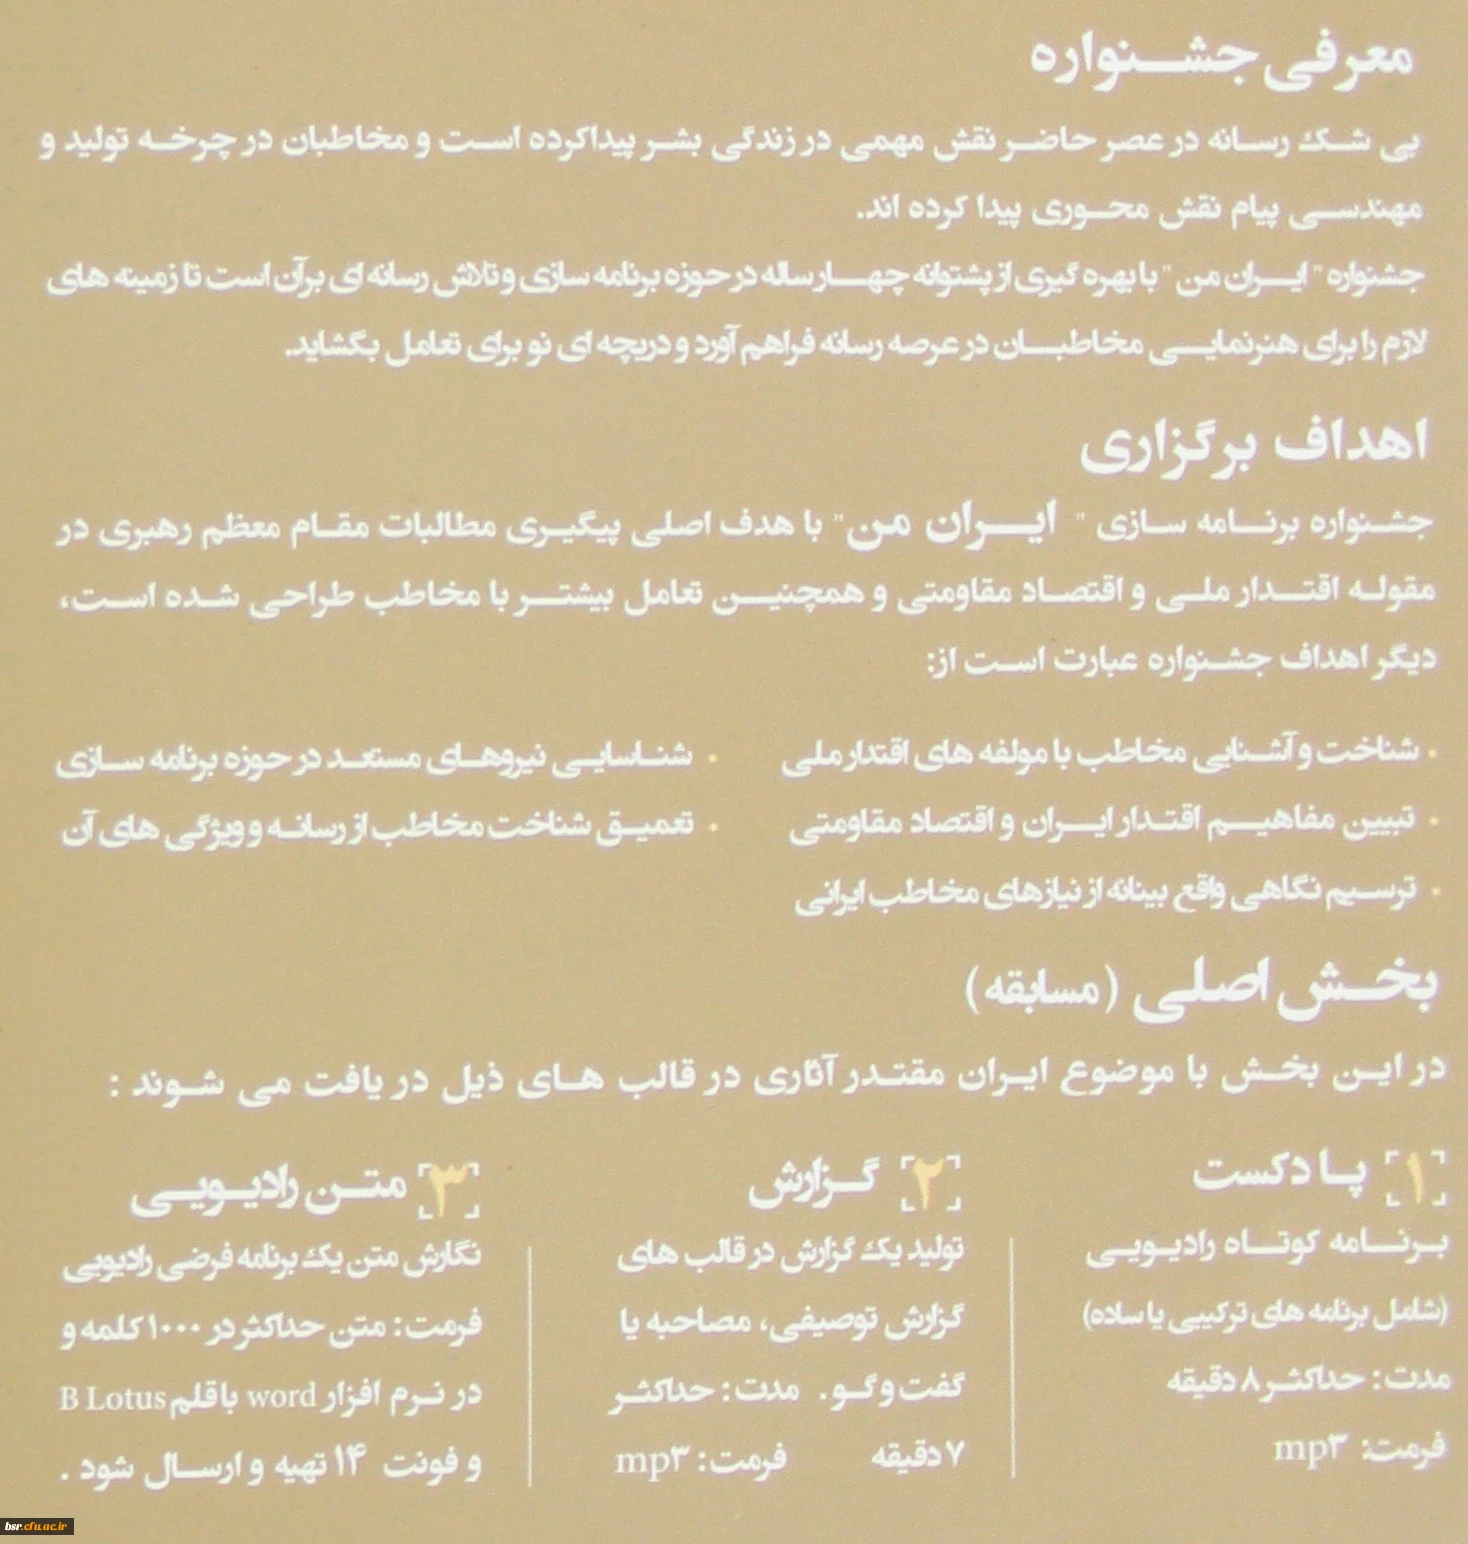 معرفی جشنواره
بی شک رسانه در عصر حاضر نقش مهمی در زندگی بشر پیدا کرده است و مخاطبان در چرخه تولید و
مهندسی پیام نقش محوری پیدا کرده اند.
جشنواره " ایران من " با بهره گیری از پشتوانه چهارساله در حوزه برنامه سازی و تلاش رسانه ای برآن است تا زمینه های
لازم را برای هنرنمایی مخاطبان در عرصه رسانه فراهم آورد و دریچه ای نو برای تعامل بگشاید.
اهداف برگزاری
جشنواره برنامه سازی " ایران من" با هدف اصلی پیگیری مطالبات مقام معظم رهبری در
مقوله اقتدار ملی و اقتصاد مقاومتی و همچنین تعامل بیشتر با مخاطب طراحی شده است،
دیگر اهداف جشنواره عبارت است از:
• شناخت و آشنایی مخاطب با مولفه های اقتدار ملی
• تبیین مفاهیم اقتدار ایران و اقتصاد مقاومتی
• ترسیم نگاهی واقع بینانه از نیازهای مخاطب ایرانی
• شناسایی نیروهای مستعد در حوزه برنامه سازی
• تعمیق شناخت مخاطب از رسانه و ویژگی های آن
بخش اصلی (مسابقه)
در این بخش با موضوع ایران مقتدر آثاری در قالب های ذیل دریافت می شوند :
۱ پادکست
برنامه کوتاه رادیویی
(شامل برنامه های ترکیبی یا ساده)
مدت: حداکثر ۸ دقیقه
فرمت: mp۳
۲ گزارش
تولید یک گزارش در قالب های
گزارش توصیفی، مصاحبه یا
گفت و گو . مدت: حداکثر
۷ دقیقه فرمت: mp۳
۳ متن رادیویی
نگارش متن یک برنامه فرضی رادیویی
فرمت: متن حداکثر در ۱۰۰۰ کلمه و
در نرم افزار word با قلم B Lotus
و فونت ۱۴ تهیه و ارسال شود .
bsr.cfu.ac.ir